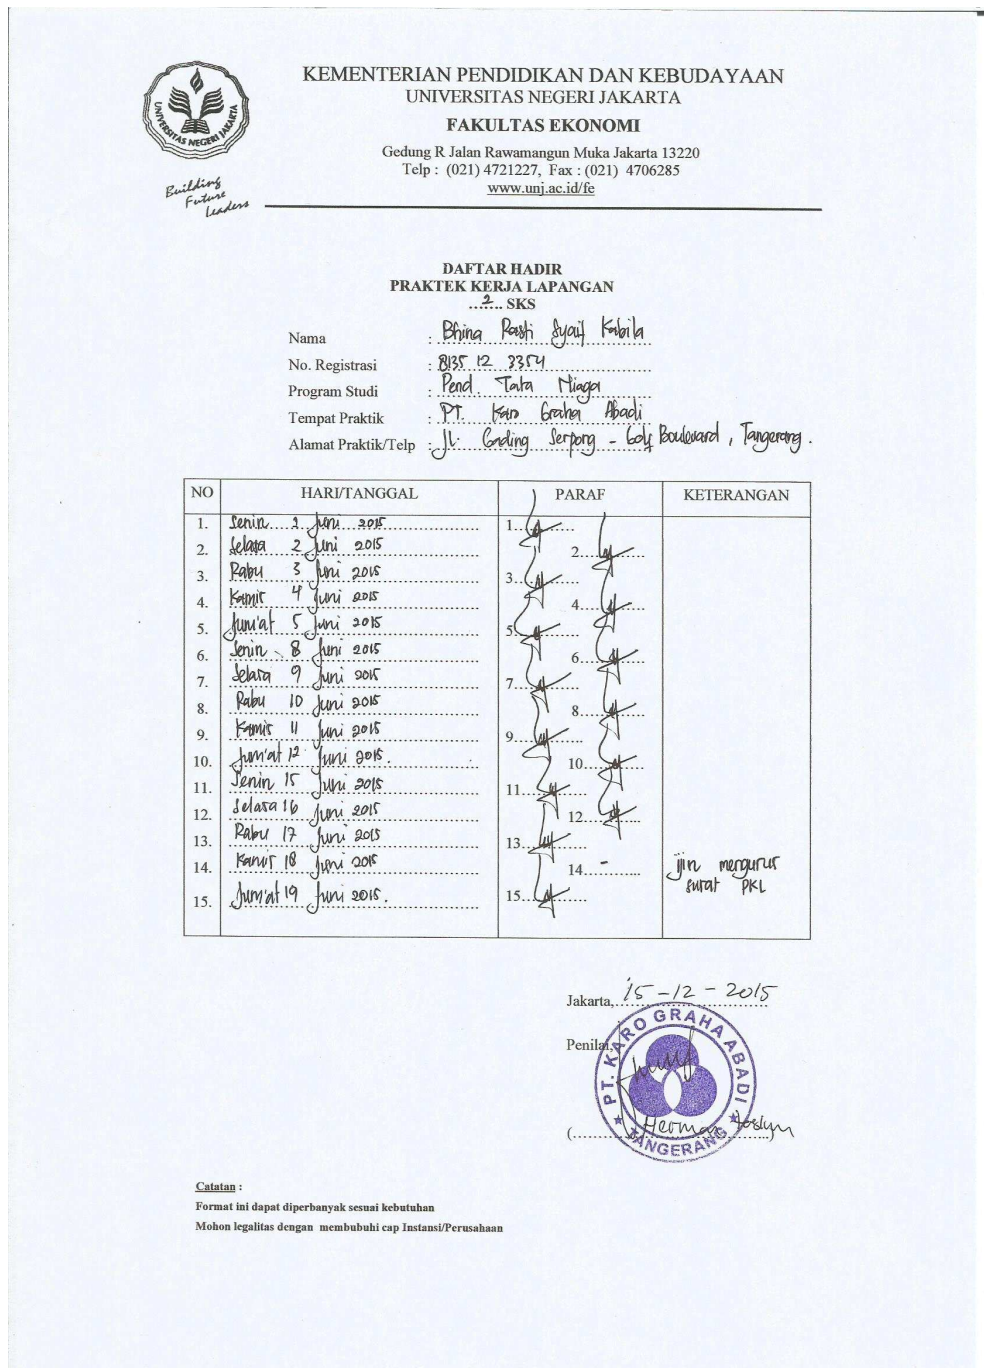 KEMENTERIAN PENDIDIKAN DAN KEBUDAYAAN
UNIVERSITAS NEGERI JAKARTA
FAKULTAS EKONOMI
Gedung R Jalan Rawamangun Muka Jakarta 13220
Telp : (021) 4721227, Fax : (021) 4706285
www.unj.ac.id/fe
UNIVERSITAS NEGERI JAKARTA
Building
Future
Leaders
DAFTAR HADIR
PRAKTEK KERJA LAPANGAN
...2... SKS
Nama : Bhina Rasti Syaif Kabila
No. Registrasi : 8135 12 3354
Program Studi : Pend. Tata Niaga
Tempat Praktik : PT. Karo Graha Abadi
Alamat Praktik/Telp : Jl. Gading Serpong - Golf Boulevard, Tangerang.
NO HARI/TANGGAL PARAF KETERANGAN
1. Senin 1 Juni 2015 1.
2. Selasa 2 Juni 2015 2.
3. Rabu 3 Juni 2015 3.
4. Kamis 4 Juni 2015 4.
5. Jum'at 5 Juni 2015 5.
6. Senin 8 Juni 2015 6.
7. Selasa 9 Juni 2015 7.
8. Rabu 10 Juni 2015 8.
9. Kamis 11 Juni 2015 9.
10. Jum'at 12 Juni 2015. 10.
11. Senin 15 Juni 2015 11.
12. Selasa 16 Juni 2015 12.
13. Rabu 17 Juni 2015 13.
14. Kamis 18 Juni 2015 14. - ijin mengurus
surat PKL
15. Jum'at 19 Juni 2015. 15.
Jakarta, 15-12-2015
Penilai,
PT. KARO GRAHA ABADI
TANGERANG
(Herman)
Catatan :
Format ini dapat diperbanyak sesuai kebutuhan
Mohon legalitas dengan membubuhi cap Instansi/Perusahaan